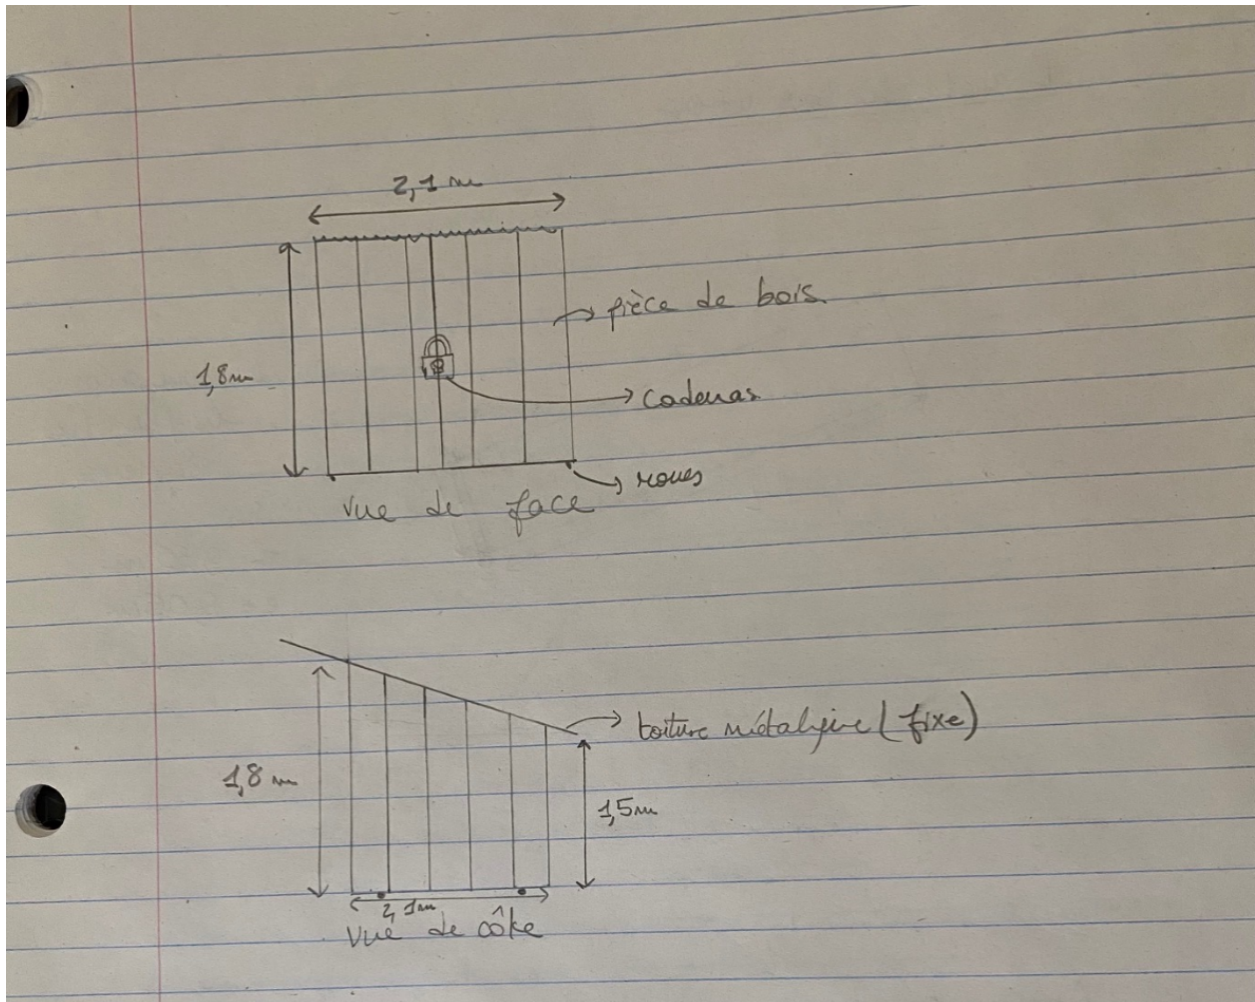 2,1 m
1,8 m
pièce de bois
cadenas
roues
vue de face
toiture métalique (fixe)
1,8 m
1,5 m
2,1 m
vue de côte